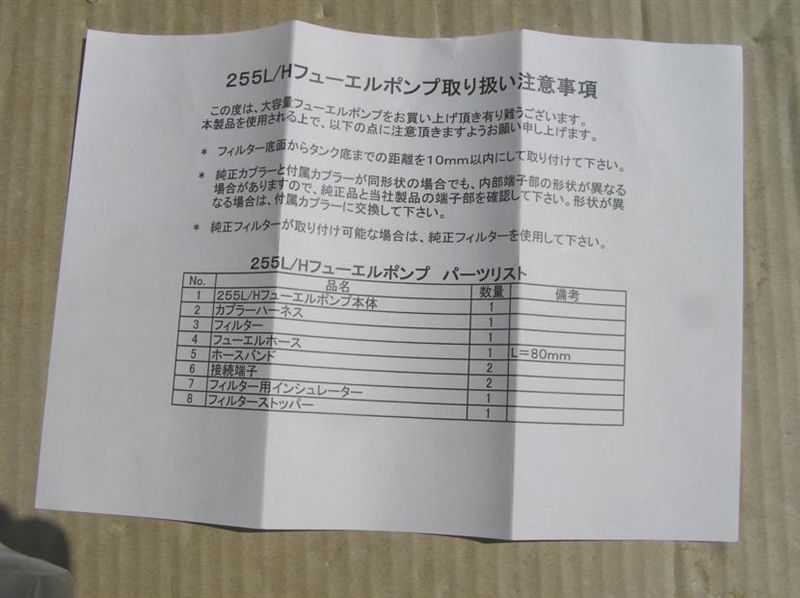 255L/Hフューエルポンプ取り扱い注意事項
この度は、大容量フューエルポンプをお買い上げ頂き有り難うございます。
本製品を使用される上で、以下の点に注意頂きますようお願い申し上げます。
* フィルター底面からタンク底までの距離を10mm以内にして取り付けて下さい。
* 純正カプラーと付属カプラーが同形状の場合でも、内部端子部の形状が異なる
場合がありますので、純正品と当社製品の端子部を確認して下さい。形状が異
なる場合は、付属カプラーに交換して下さい。
* 純正フィルターが取り付け可能な場合は、純正フィルターを使用して下さい。
255L/Hフューエルポンプ パーツリスト
No. 品名 数量 備考
1 255L/Hフューエルポンプ本体 1
2 カプラーハーネス 1
3 フィルター 1
4 フューエルホース 1 L=80mm
5 ホースバンド 2
6 接続端子 2
7 フィルター用インシュレーター 1
8 フィルターストッパー 1